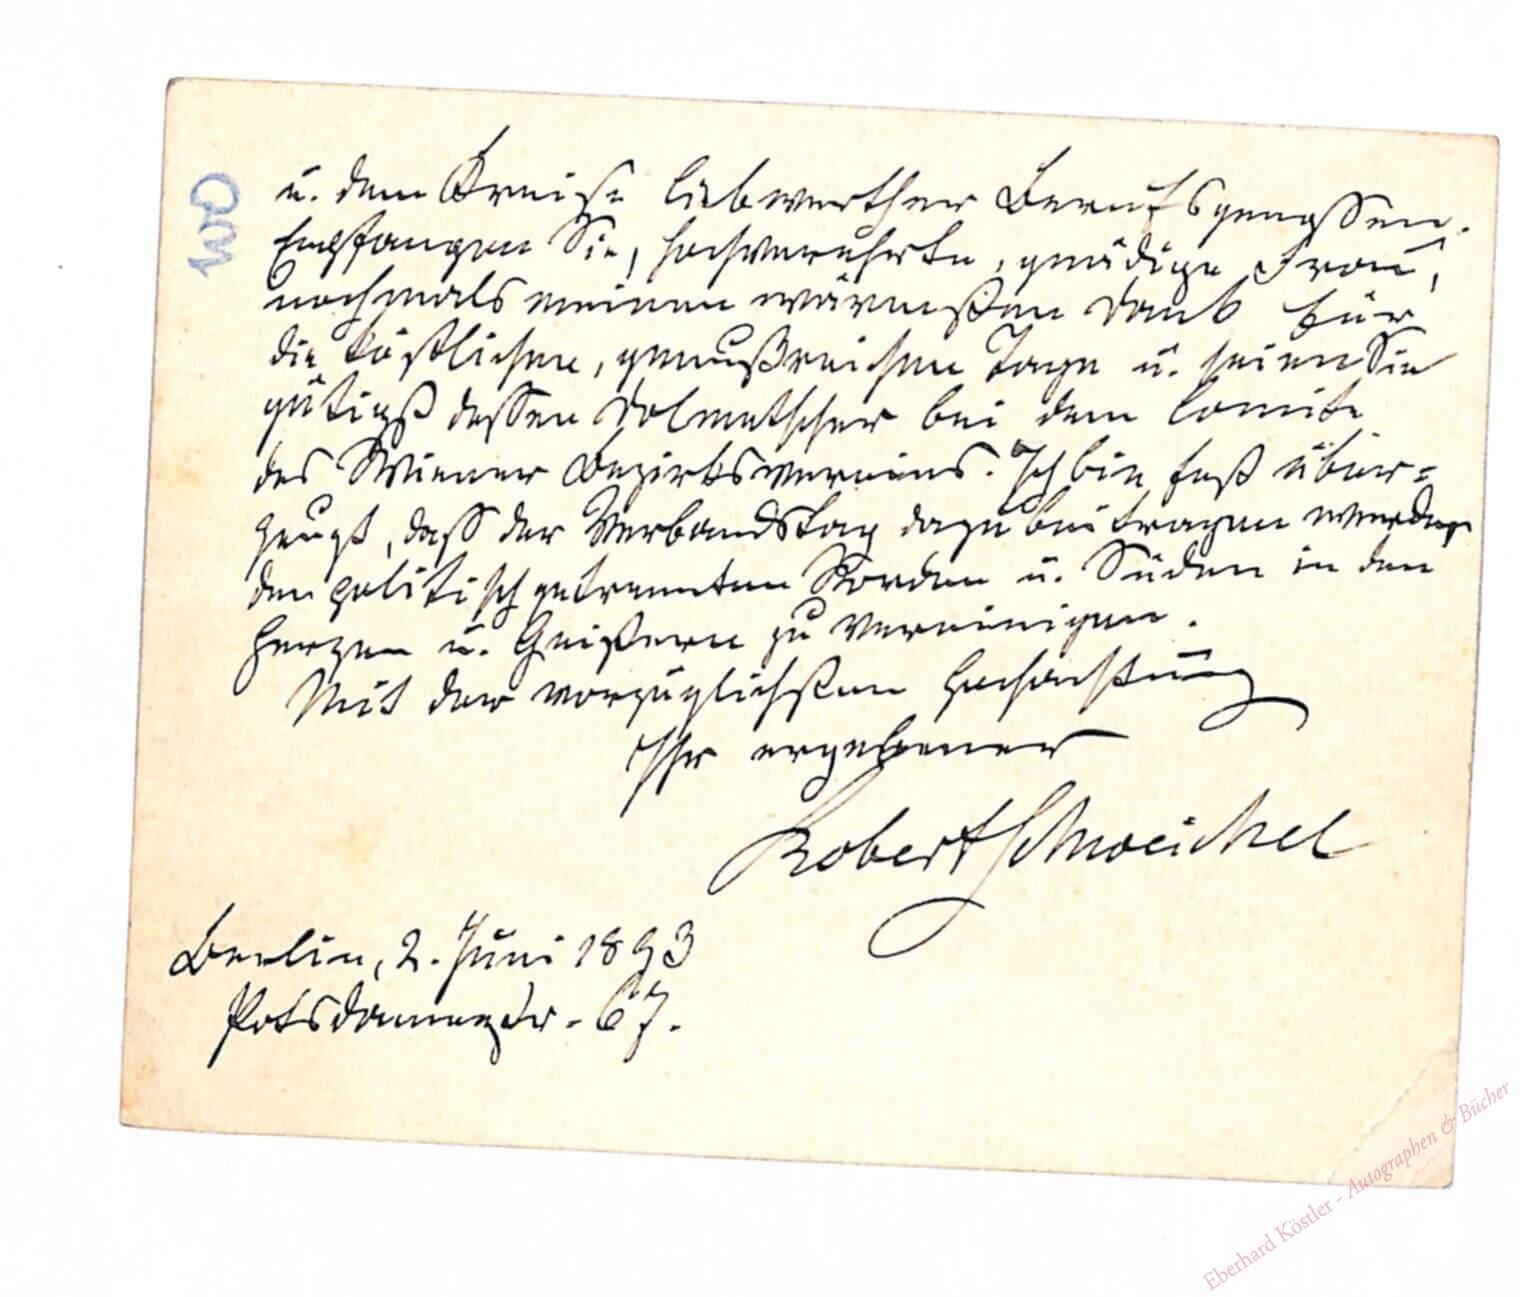 u. dem Kreise liebwerther Berufsgenossen.
Empfangen Sie, hochverehrte, gnädige Frau,
nochmals meinen wärmsten Dank für
die köstlichen, genußreichen Tage u. seien Sie
gütigst dessen Dolmetscher bei dem Comite
des Wiener Bezirksvereins. Ich bin fest über=
zeugt, dass der Verbandstag dazu beitragen werde,
den politisch getrennten Norden u. Süden in den
Herzen u. Geistern zu vereinigen.
Mit der vorzüglichsten Hochachtung
Ihr ergebener
Robert Schweichel
Berlin, 2. Juni 1893
Potsdamerstr. 67.
Eberhard Köstler - Autographen & Bücher